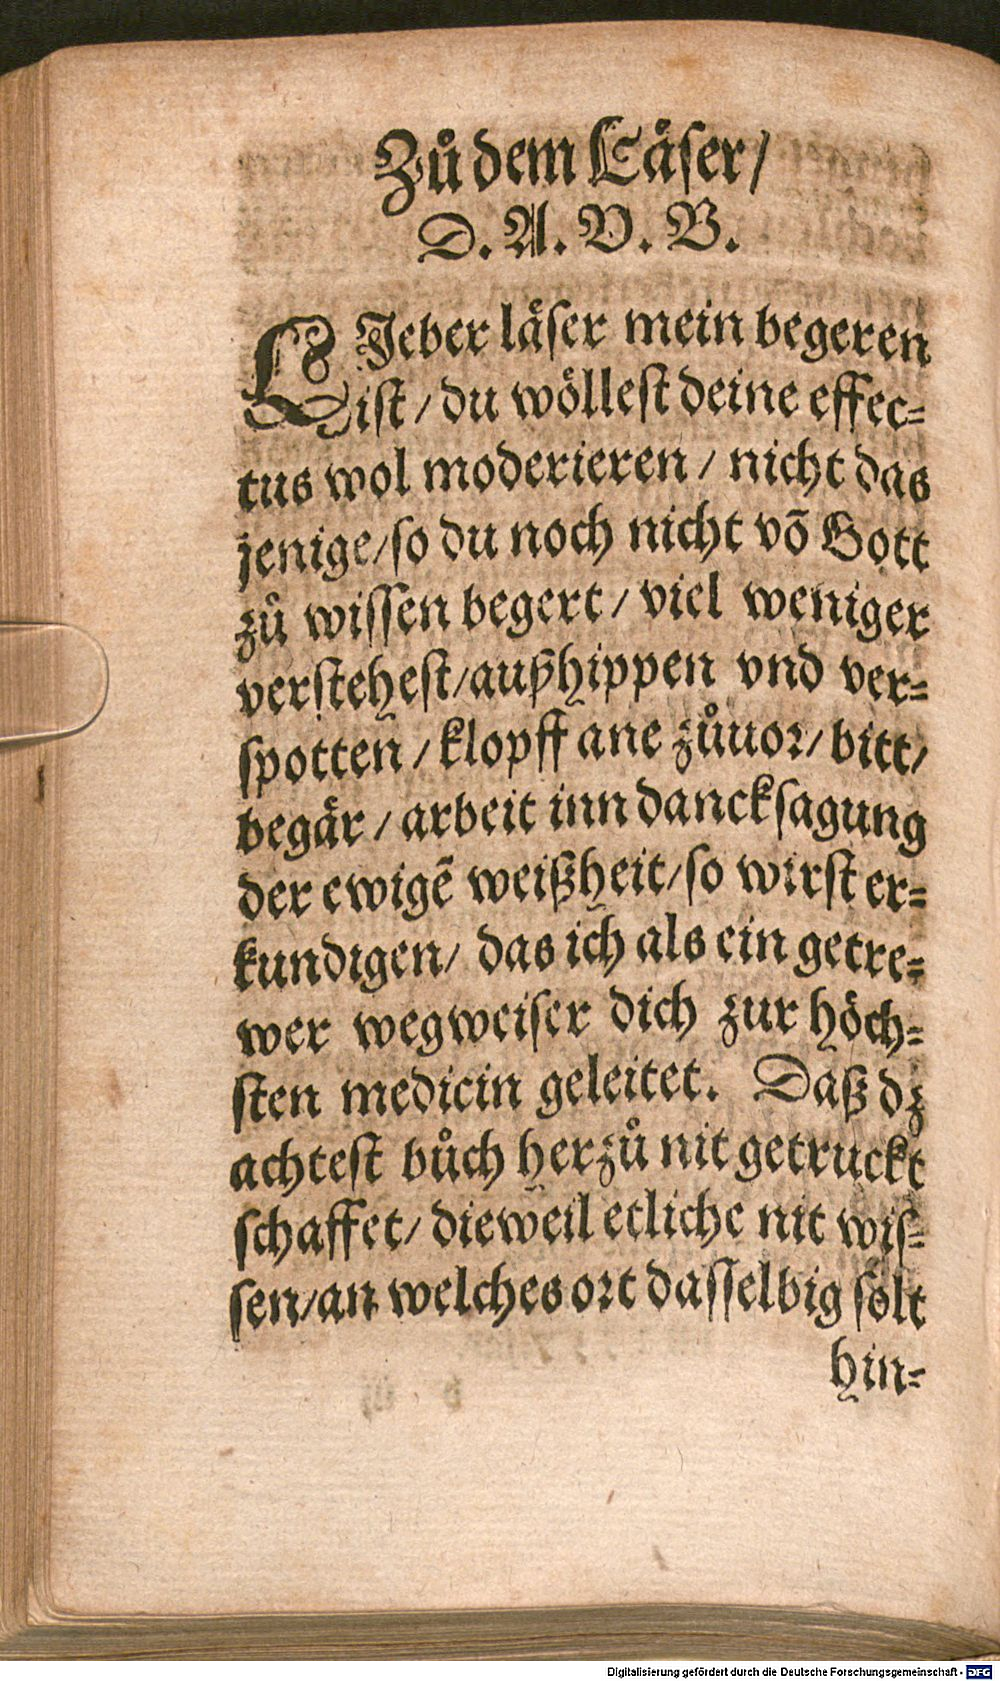 Zů dem Läser/
D. A. V. B.
LJeber läser mein begeren
ist/ du wöllest deine effec-
tus wol moderieren/ nicht das
jenige/so du noch nicht võ Gott
zů wissen begert/ viel weniger
verstehest/außhippen vnd ver-
spotten/ klopff ane zůuor/ bitt/
begär/ arbeit inn dancksagung
der ewigẽ weißheit/so wirst er-
kundigen/ das ich als ein getre-
wer wegweiser dich zur höch-
sten medicin geleitet. Daß dz
achtest bůch herzů nit getruckt
schaffet/ dieweil etliche nit wis-
sen/an welches ort dasselbig sölt
hin-
Digitalisierung gefördert durch die Deutsche Forschungsgemeinschaft - DFG